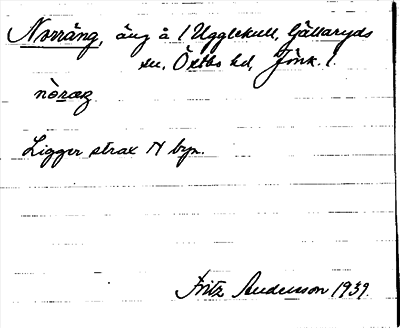 Norräng, äng å 1 Ugglekull, Gällaryds
sn, Östbo hd, Jönk. l.
nòraŋ
Ligger strax N byn.
Fritz Andersson 1939.